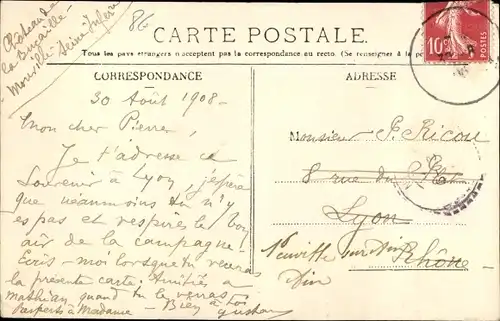 Château de
la Bucaille
Monville Seine Infre
86
CARTE POSTALE
Tous les pays étrangers n'acceptent pas la correspondance au recto. (Se renseigner à la
CORRESPONDANCE
30 Août 1908 -
Mon cher Pierre,
Je t'adresse ce
Souvenir à Lyon, j'espère
que néanmoins tu n'y
es pas et respires le bon
air de la campagne.
Ecris-moi lorsque tu recevras
la présente carte; Amitiés à
Mathéan quand tu le verras
Respects à Madame - Bien à toi
Gustave
ADRESSE
Monsieur P. Ricou
8 rue du Plat
Lyon
Neuville sur Ain Rhône
Ain
10c
POSTES